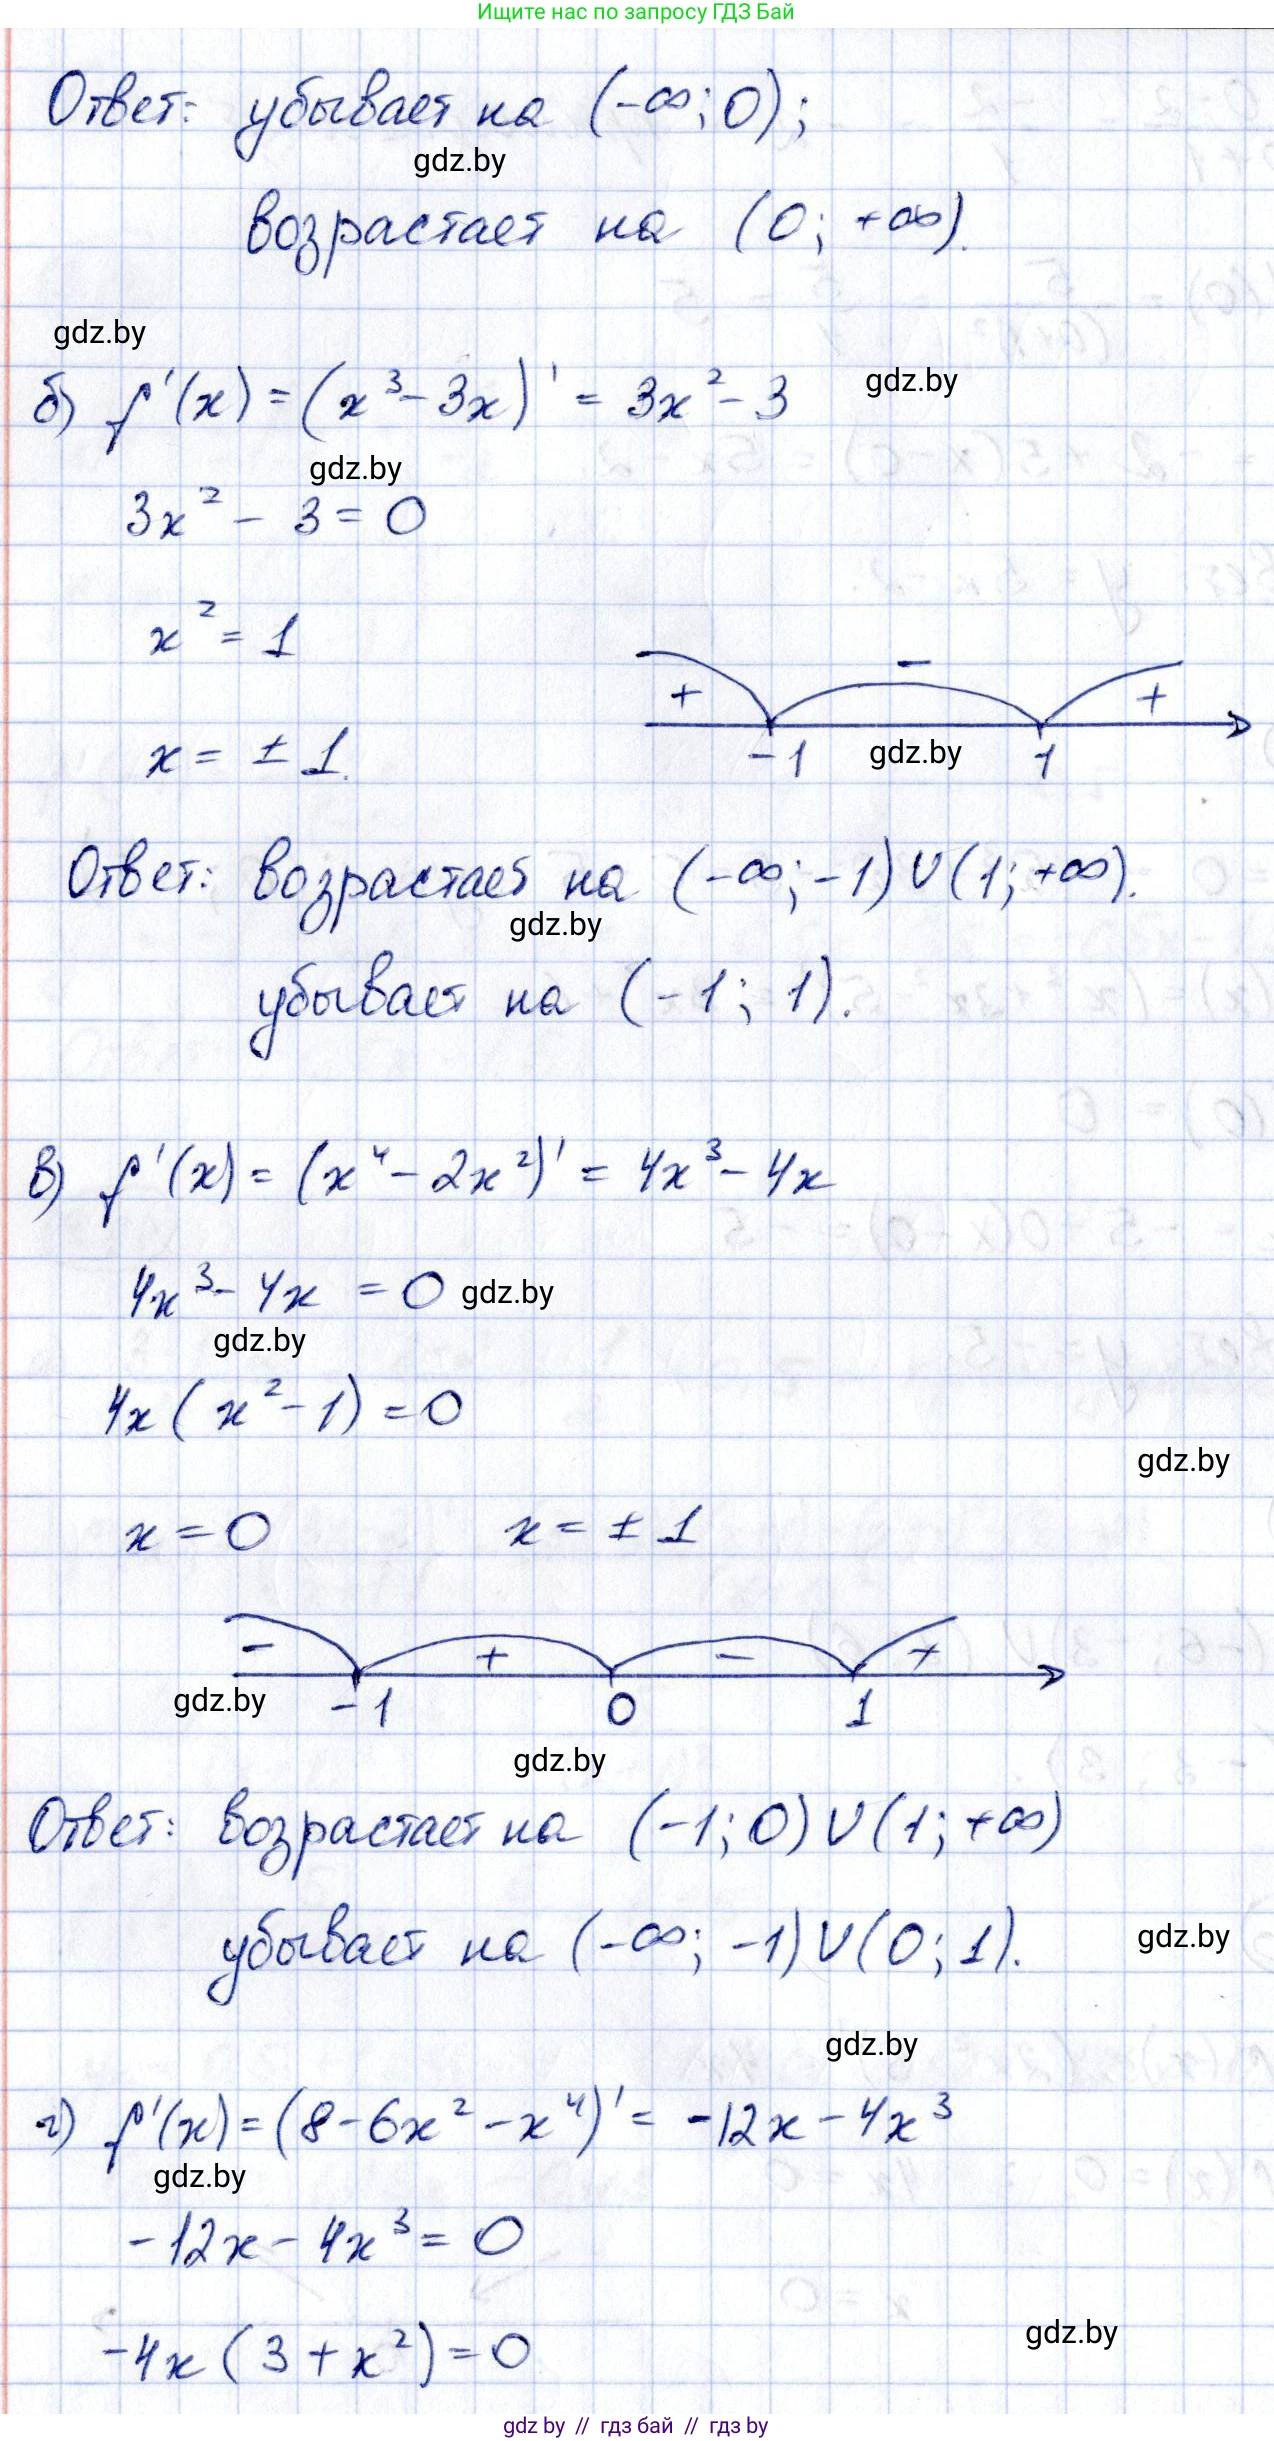 Ищите нас по запросу ГДЗ Бай
Ответ: убывает на (-∞; 0);
gdz.by
возрастает на (0; +∞).
gdz.by
б) f'(x) = (x³ - 3x)' = 3x² - 3
gdz.by
gdz.by
3x² - 3 = 0
x² = 1
+ - +
x = ± 1.
-1 gdz.by 1
Ответ: возрастает на (-∞; -1) ∪ (1; +∞).
gdz.by
убывает на (-1; 1).
в) f'(x) = (x⁴ - 2x²)' = 4x³ - 4x
4x³ - 4x = 0 gdz.by
gdz.by
4x (x² - 1) = 0
gdz.by
x = 0 x = ± 1
- + - +
gdz.by -1 0 1
gdz.by
Ответ: возрастает на (-1; 0) ∪ (1; +∞)
убывает на (-∞; -1) ∪ (0; 1).
gdz.by
gdz.by
г) f'(x) = (8 - 6x² - x⁴)' = -12x - 4x³
gdz.by
-12x - 4x³ = 0
gdz.by
-4x (3 + x²) = 0
gdz by // гдз бай // гдз by